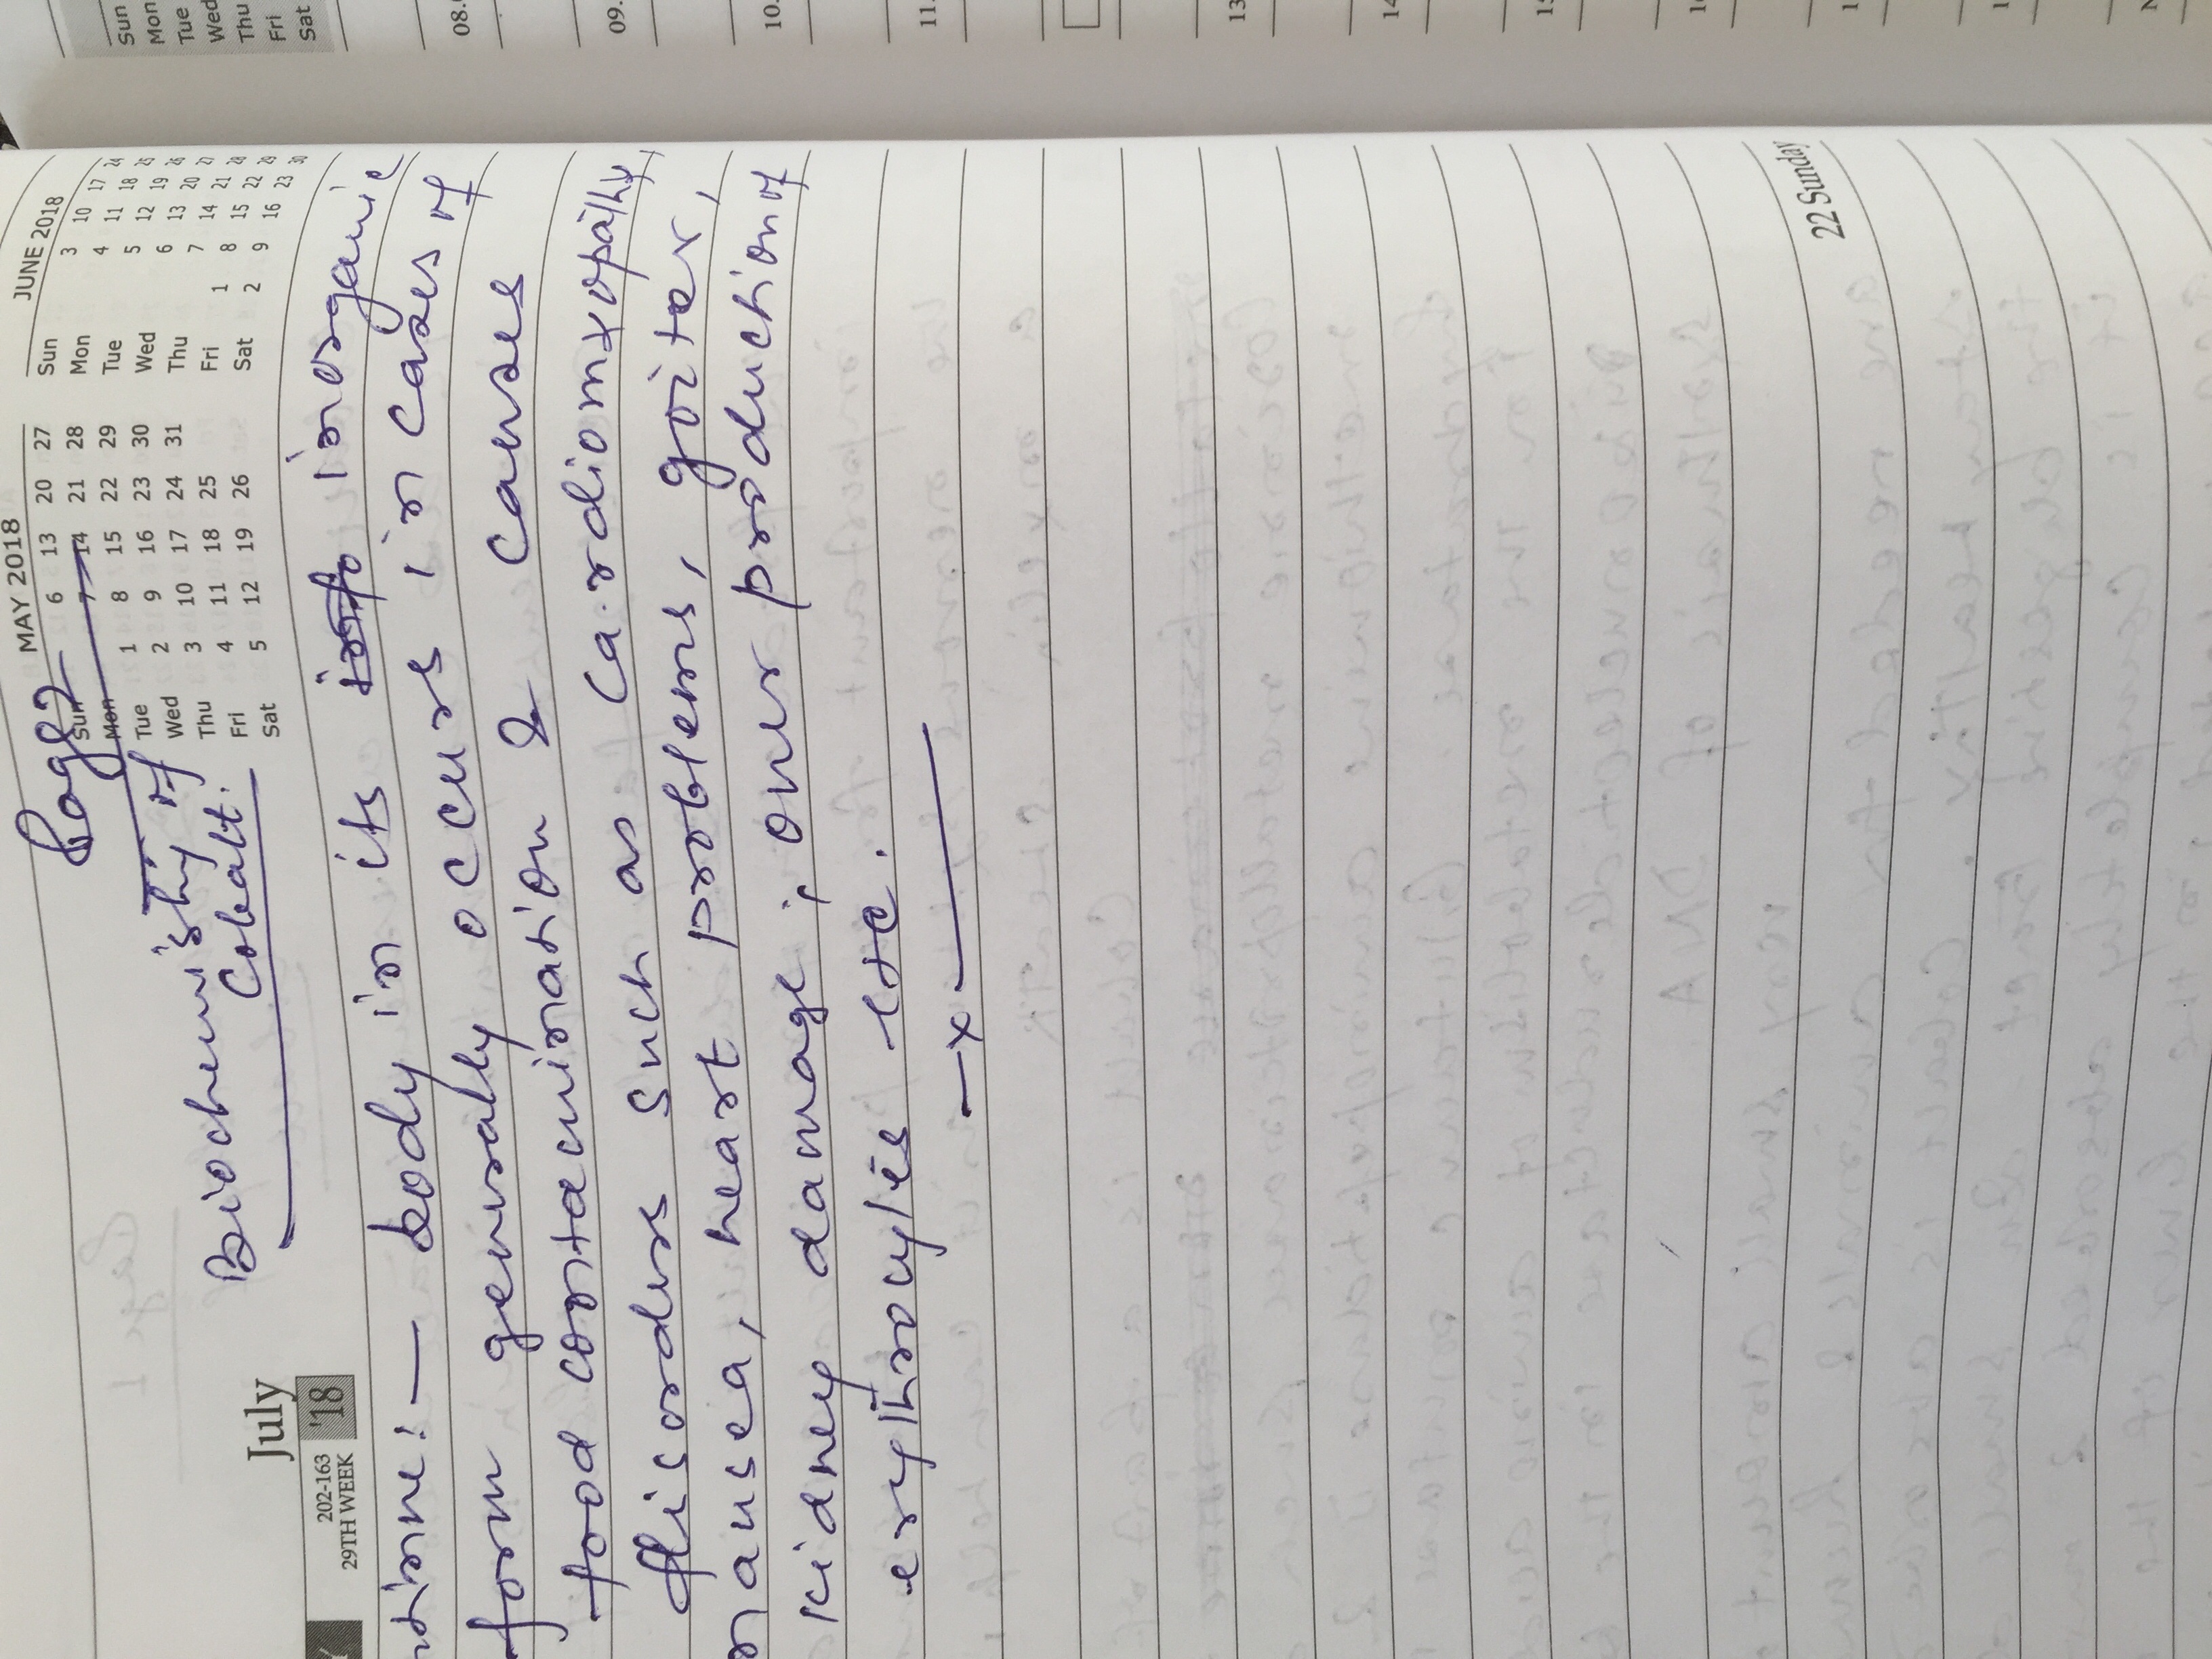 Page 2
Biochemistry of
Cobalt.
July
202-163
29TH WEEK
'18
MAY 2018
Sun 6 13 20 27
Mon 7 14 21 28
Tue 1 8 15 22 29
Wed 2 9 16 23 30
Thu 3 10 17 24 31
Fri 4 11 18 25
Sat 5 12 19 26
JUNE 2018
Sun 3 10 17 24
Mon 4 11 18 25
Tue 5 12 19 26
Wed 6 13 20 27
Thu 7 14 21 28
Fri 1 8 15 22 29
Sat 2 9 16 23 30
body in its into inorganic
form generally occurs in cases of
food contamination & causes
disorders such as cardiomyopathy,
nausea, heart problems, goiter,
kidney damage; over production of
erythrocytes etc.
—x—
22 Sunday
Sun
Mon
Tue
Wed
Thu
Fri
Sat